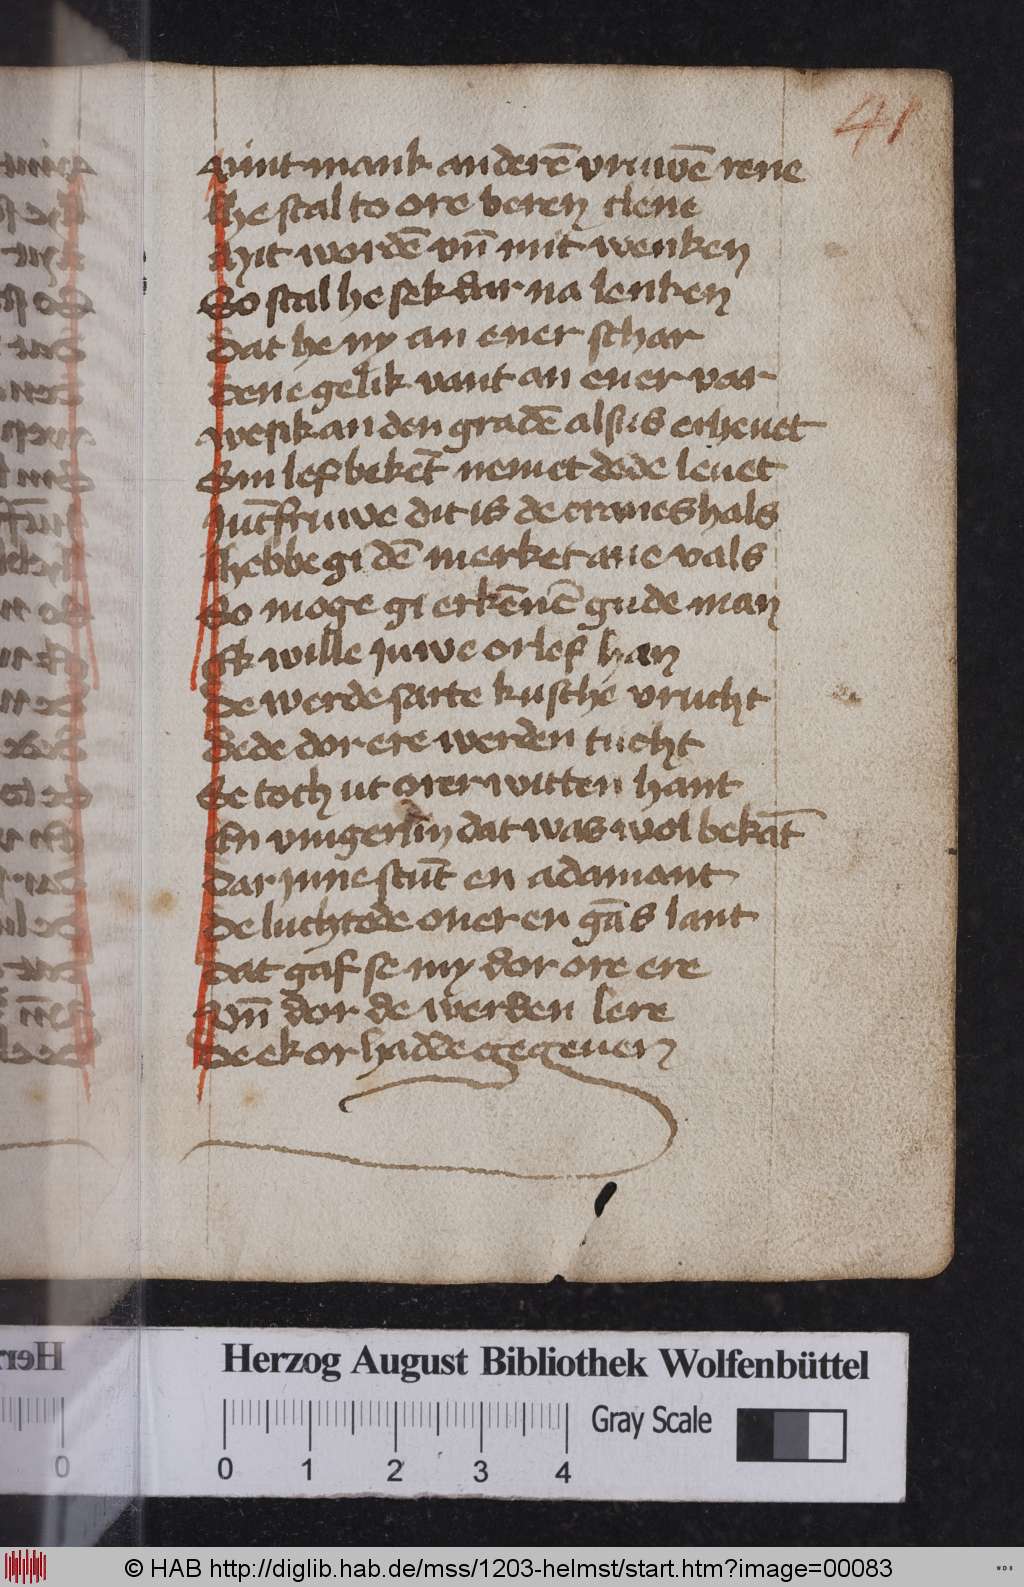 41
vint mank anderē vruwē rene
he scal to ore beren clene
Mit wordē vn̄ mit wenken
So scal he sek dar na lenken
Dat he ny an ener schar
Dene gelik vant an ener var
we sik an den gradē alsus erheuet
Sin lef beket̄ nemet dode leuet
Juc̄fruwe dit is de craneshals
hebbe gi dē merket ane vals
So moge gi erkēnē gude man
Ik wille juwe orlef han
De werde sarte kusche vrucht
Dede dor ere werden tucht
Se toch ut orer witten hant
En vingerlin dat was wol bekāt
Dar inne stūt en adamant
De luchtede ouer en gās lant
Dat gaf se my dor ore ere
Vn̄ dor de werden lere
De ek or hadde gegeuen
Herzog August Bibliothek Wolfenbüttel
0 1 2 3 4 Gray Scale
© HAB http://diglib.hab.de/mss/1203-helmst/start.htm?image=00083